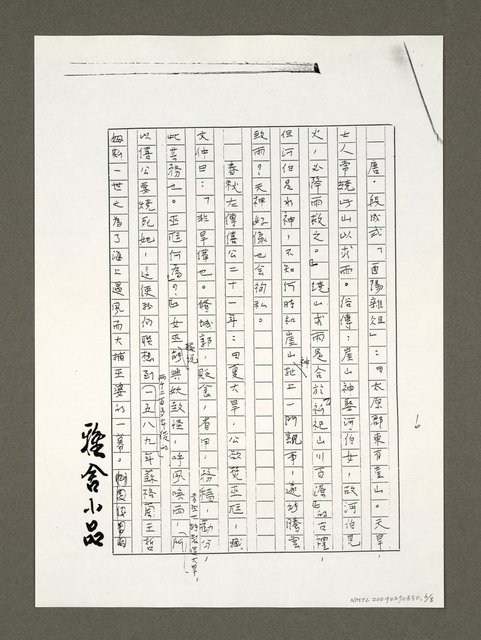 唐·段成式「酉陽雜俎」：「太原郡東有崖山。天旱，
士人常燒此山以求雨。俗傳：崖山神娶河伯女，故河伯見
火，必降雨救之。」燒山求雨是合於祈祀山川百源的古禮，
但河伯是水神，不知何時和崖山神攀上一門親事，遂能騰雲
致雨？天神好像也會徇私。
春秋左傳僖公二十一年：「夏大旱，公欲焚巫尪，臧
文仲曰：『非旱備也。脩城郭，貶食，省用，務穡，勸分，
此其務也。巫尪何為？』」女巫能興妖致怪，呼風喚雨，所
以僖公要燒死她，這使我們聯想到一五八九年蘇格蘭王哲
姆斯一世之為了海上遇風而大捕巫婆的一幕。
雅舍小品
6
NMTL20090290650, 6/8